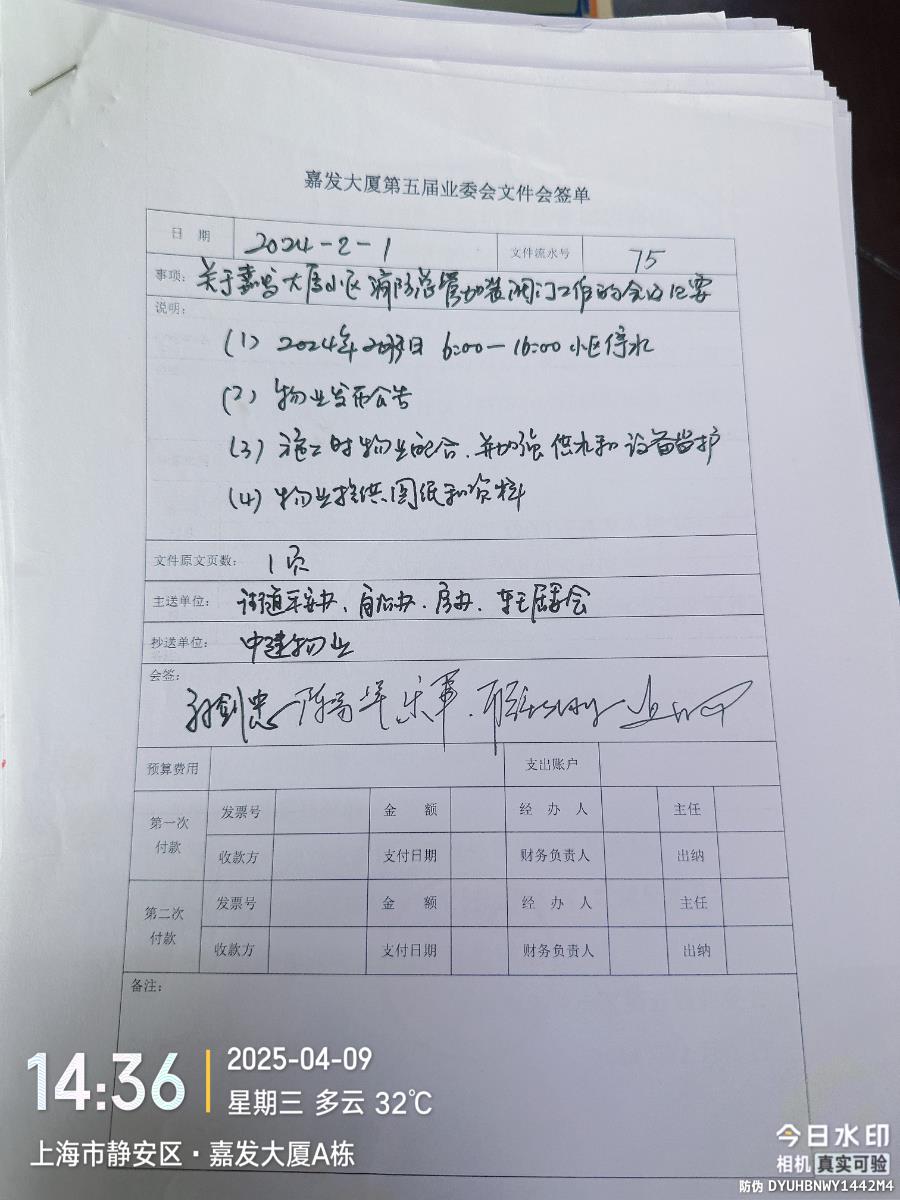 嘉发大厦第五届业委会文件会签单
日 期 2024-2-1 文件流水号 75
事项: 关于嘉发大厦小区消防总管加装阀门工作的会议纪要
说明:
(1) 2024年2月3日 6:00—16:00 小区停水
(2) 物业发布公告
(3) 施工时物业配合、并加强供水和设备监护
(4) 物业提供图纸和资料
文件原文页数: 1页
主送单位: 街道平安办、自治办、房办、居委会
抄送单位: 中建物业
会签:
预算费用 支出账户
第一次付款 发票号 金 额 经 办 人 主任
收款方 支付日期 财务负责人 出纳
第二次付款 发票号 金 额 经 办 人 主任
收款方 支付日期 财务负责人 出纳
备注:
14:36 2025-04-09
星期三 多云 32℃
上海市静安区·嘉发大厦A栋
今日水印
相机 真实可验
防伪 DYUHBNWY1442M4